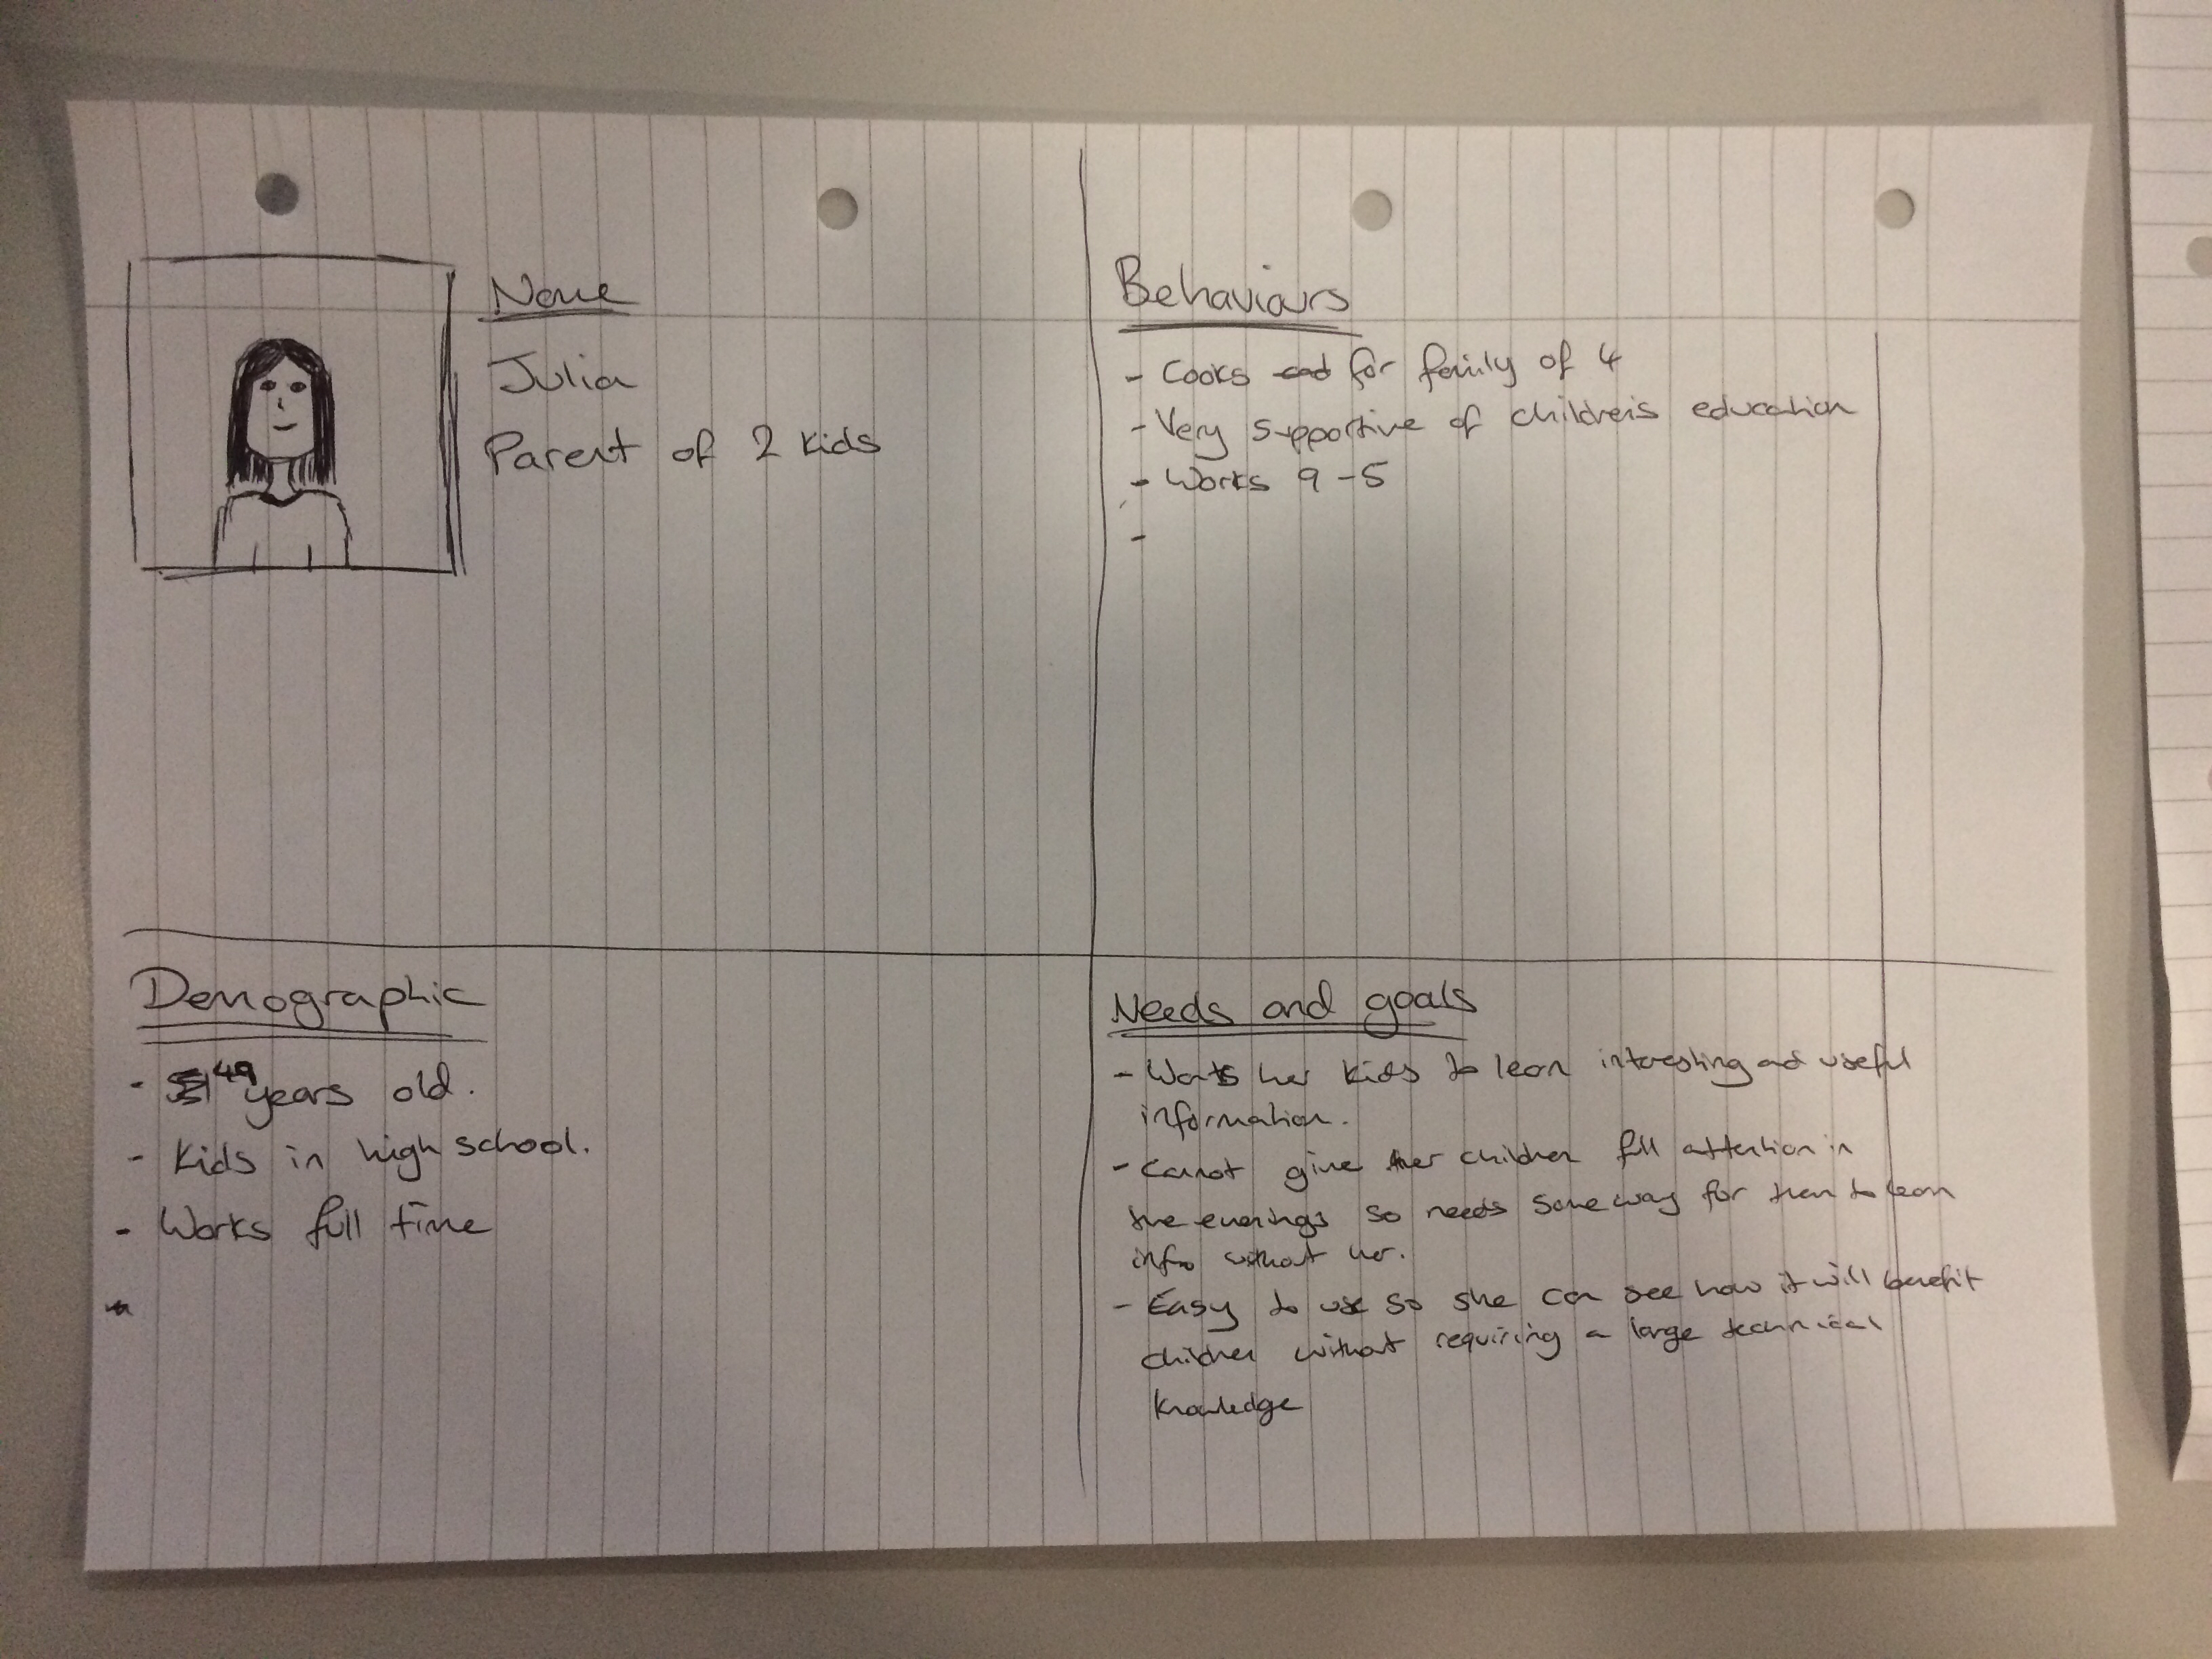 Name
Julia
Parent of 2 kids
Behaviours
- Cooks and for family of 4
- Very supportive of children's education
- Works 9-5
-
Demographic
- 49 years old.
- Kids in high school.
- Works full time
Needs and goals
- Wants her kids to learn interesting and useful
information.
- Cannot give her children full attention in
the evenings so needs some way for them to learn
info without her.
- Easy to use so she can see how it will benefit
children without requiring a large technical
knowledge